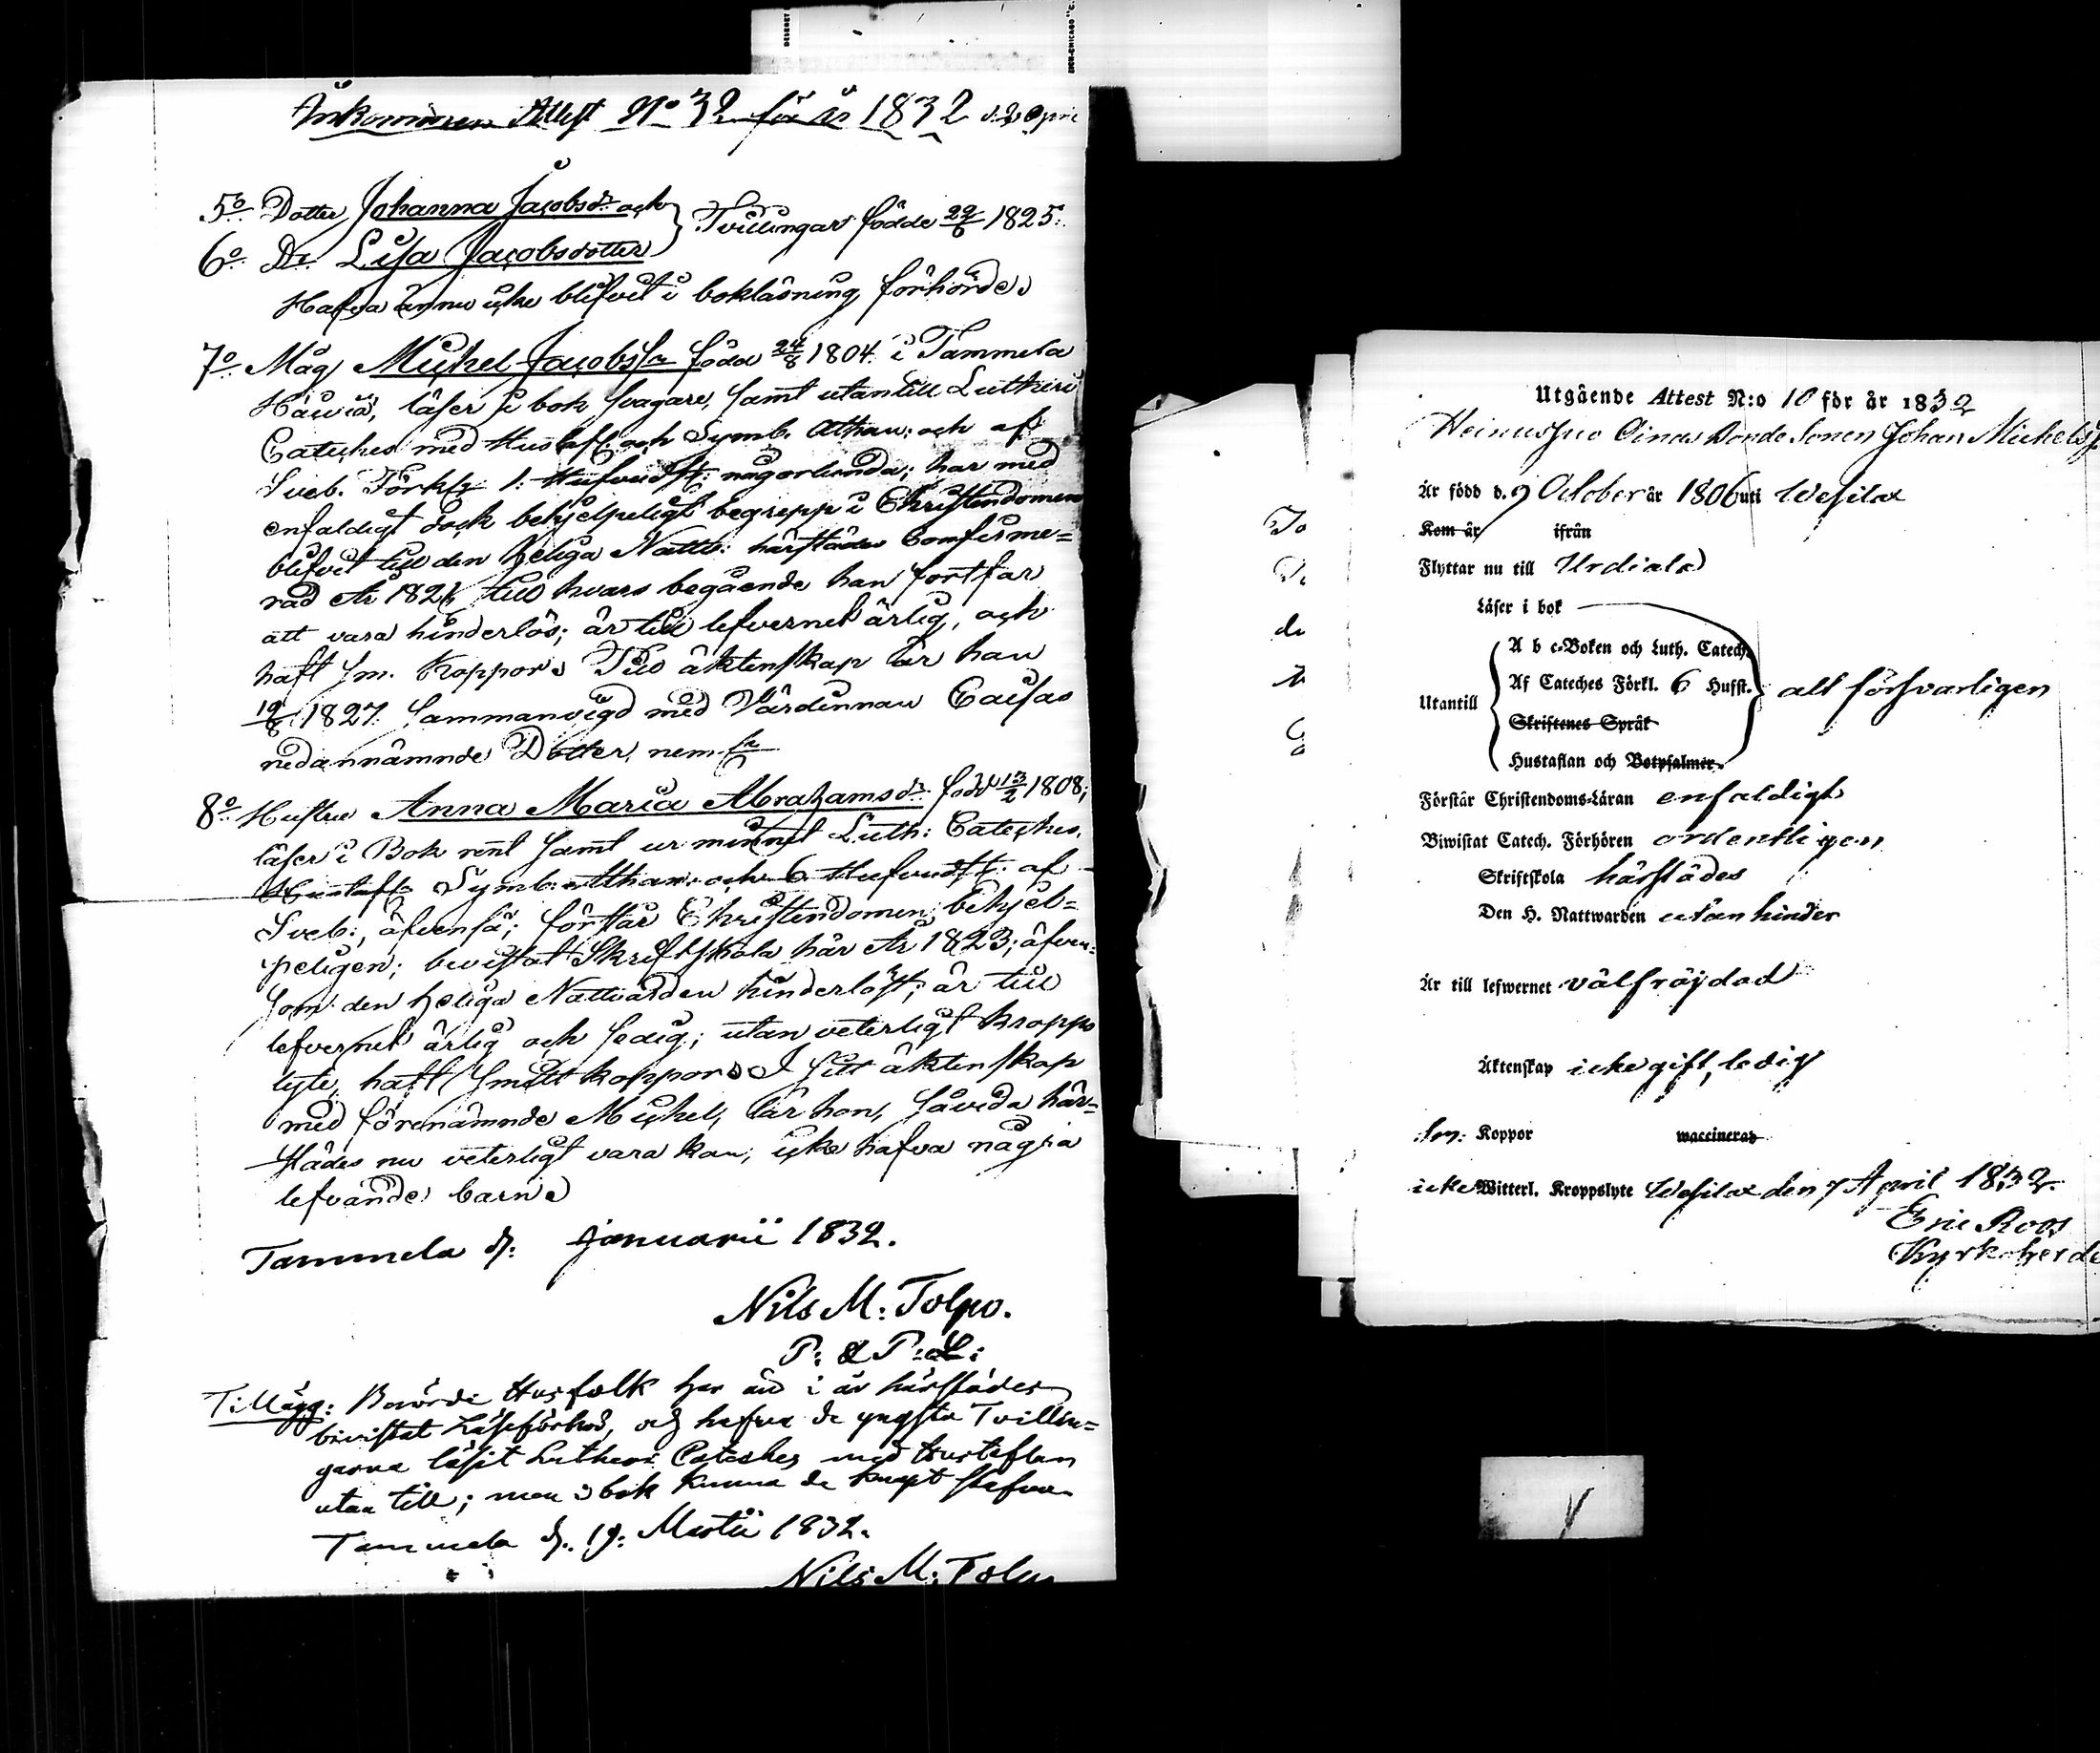 Ankommen Attest No 32 för år 1832 d. 2 April
5o Dotter Johanna Jacobsdr och
6o Dr Lisa Jacobsdotter } Tvillingar födde 22/6 1825.
Hafva ännu icke blifvit i bokläsning förhörde.
7o Måg Michel Jacobsson född 24/8 1804 i Tammela
läser i bok svagare, samt utantill Lutheri
Cateches med Hustafl. och Symb. Athan: och af
Sveb. Förkl. 1. Hufvudst: någorlunda; har med
enfaldigt dock behjelpeligt begrepp i Christendomen
blifvit till den heliga Nattv: härstädes Comfirme=
rad År 1821 till hvars begående han fortfar
att vara hinderlös; är till lefvernet ärlig, och
haft sm. Koppor. Till äktenskap är han
1827 sammanvigd med Värdinnan Caisas
nedannämnde Dotter, neml.
8o Hustru Anna Maria Abrahamsdr född 13/2 1808;
läser i Bok rent samt ur minnet Luth: Cateches.
Hustafl. Symb. Athan. och 6 Hufvudst: af
Sveb:, äfvenså; förstår Christendomen behjel=
peligen; bevistat Skriftskola här År 1823; äfven=
som den heliga Nattvarden hinderlöst; är till
lefvernet ärlig och sedig; utan veterligt kropps
lyte, haft smått koppor. I sitt äktenskap
med förenämnde Michel, lär hon, såvida här=
städes nu veterligt vara kan, icke hafva några
lefvande barn.
Tammela d. Januarii 1832.
Nils M: Tolpo.
P: & P: L:
Tillägg: Berörde Husfolk har äfv i år härstädes
bivistat Läseförhör, och hafva de yngsta Tvillin=
garna läsit Lutheri Cateches med Hustaflan
utan till; men i bok kunna de knapt stafva.
Tammela d. 19: Martii 1832.
Nils M: Tolpo
Utgående Attest N:o 10 för år 1832
Heinussuo Bonde Sonen Johan Michelss
Är född d. 9 October år 1806 uti Wesilax
Kom år ifrån
Flyttar nu till Urdiala
Läser i bok
Utantill
A b c-Boken och Luth. Catech.
Af Cateches Förkl. 6 Hufst. allt försvarligen
Skriftenes Språk
Hustaflan och Botpsalmer.
Förstår Christendoms-Läran enfaldigt
Biwistat Catech. Förhören ordentligen
Skriftskola härstädes
Den H. Nattwarden utan hinder
Är till lefwernet välfräjdad
Äktenskap icke gift, ledig
sm: Koppor waccinerad
icke Witterl. Kroppslyte Wesilax den 7 April 1832.
Eric Roos
Kyrkoherde